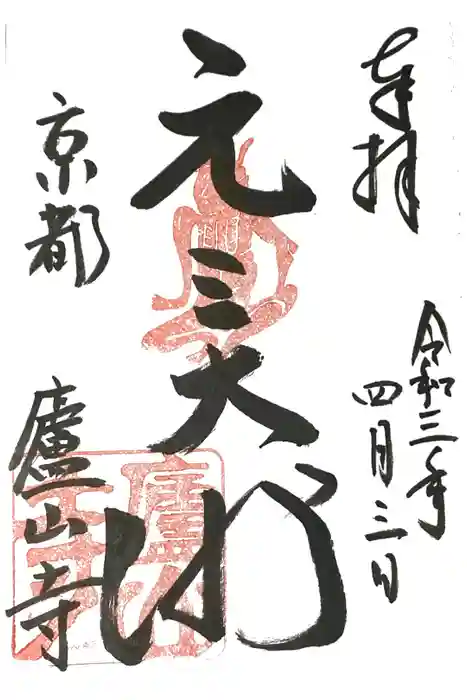 奉拝
令和三年
四月三日
元三大師
京都
廬山寺